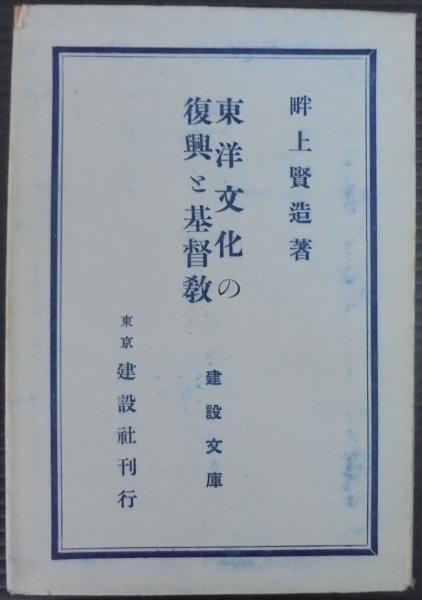 畔上賢造著
東洋文化の
復興と基督教
建設文庫
東京 建設社刊行